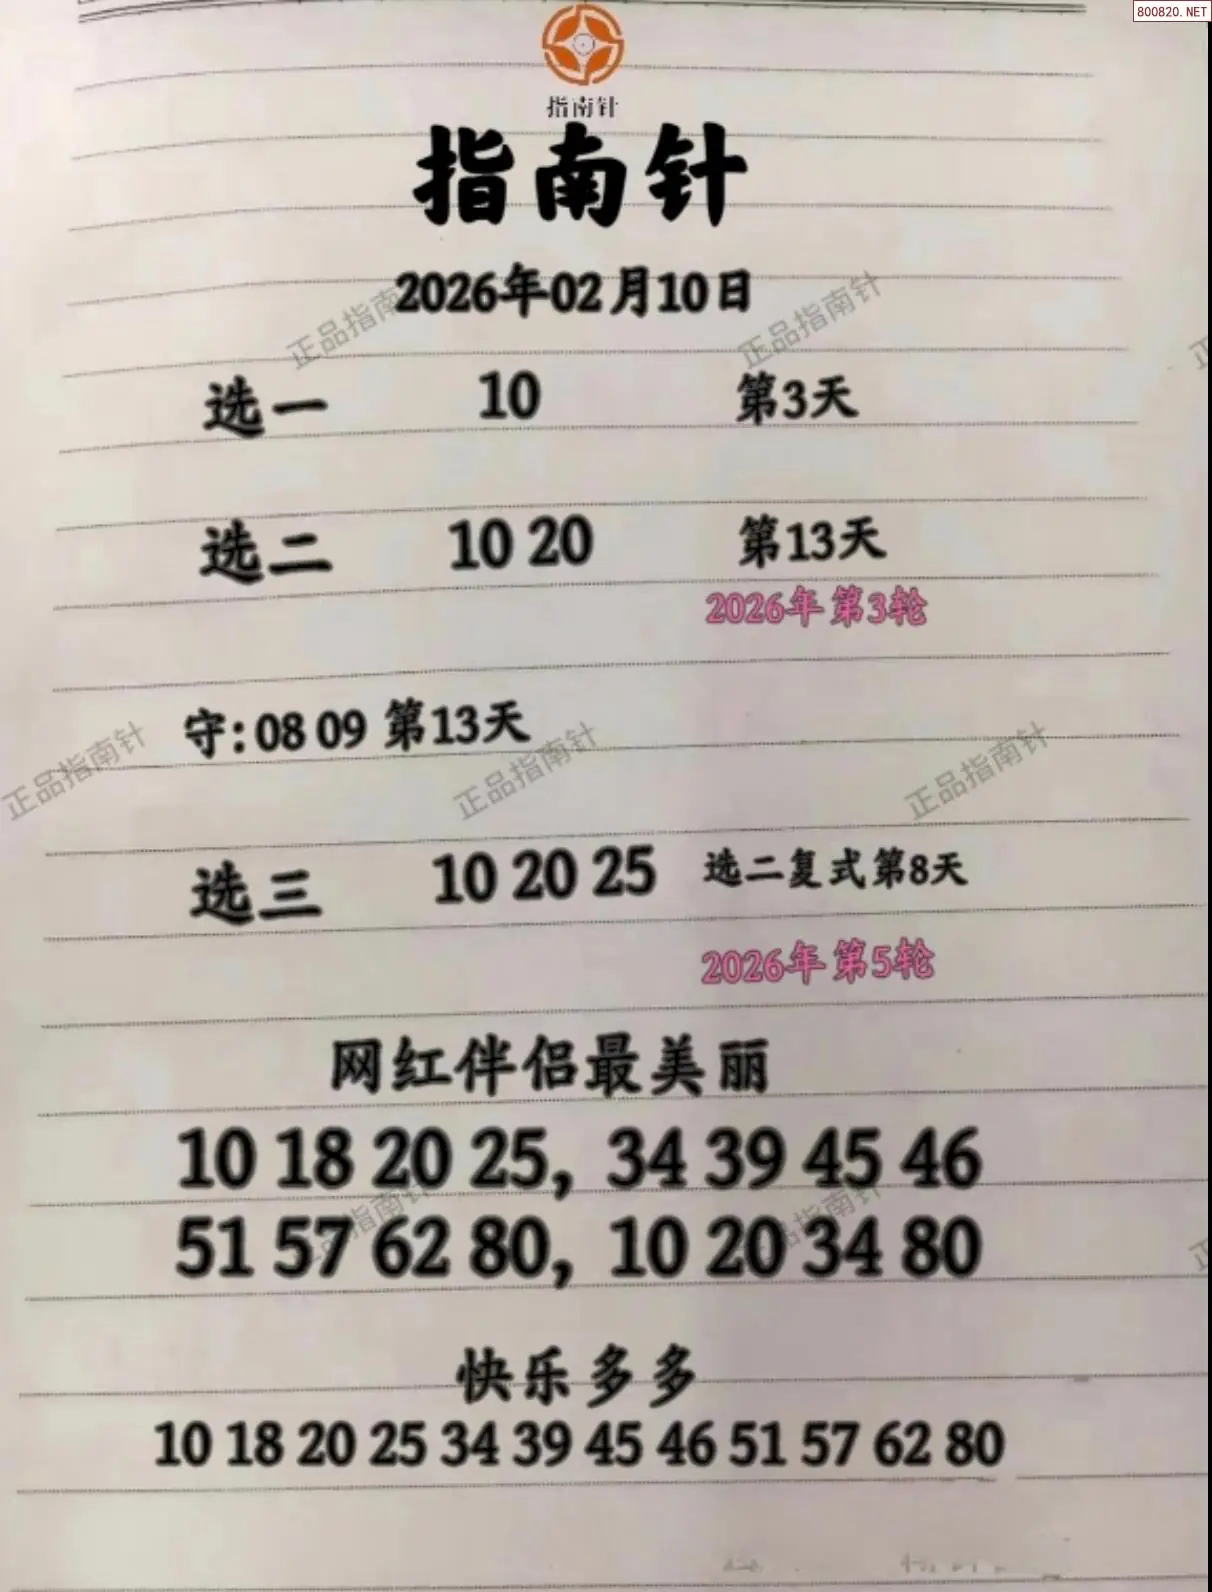 800820.NET
指南针
指南针
2026年02月10日
正品指南针 正品指南针
选一 10 第3天
选二 10 20 第13天
2026年第3轮
守:08 09 第13天
正品指南针 正品指南针 正品指南针
选三 10 20 25 选二复式第8天
2026年第5轮
网红伴侣最美丽
10 18 20 25, 34 39 45 46
51 57 62 80, 10 20 34 80
快乐多多
10 18 20 25 34 39 45 46 51 57 62 80